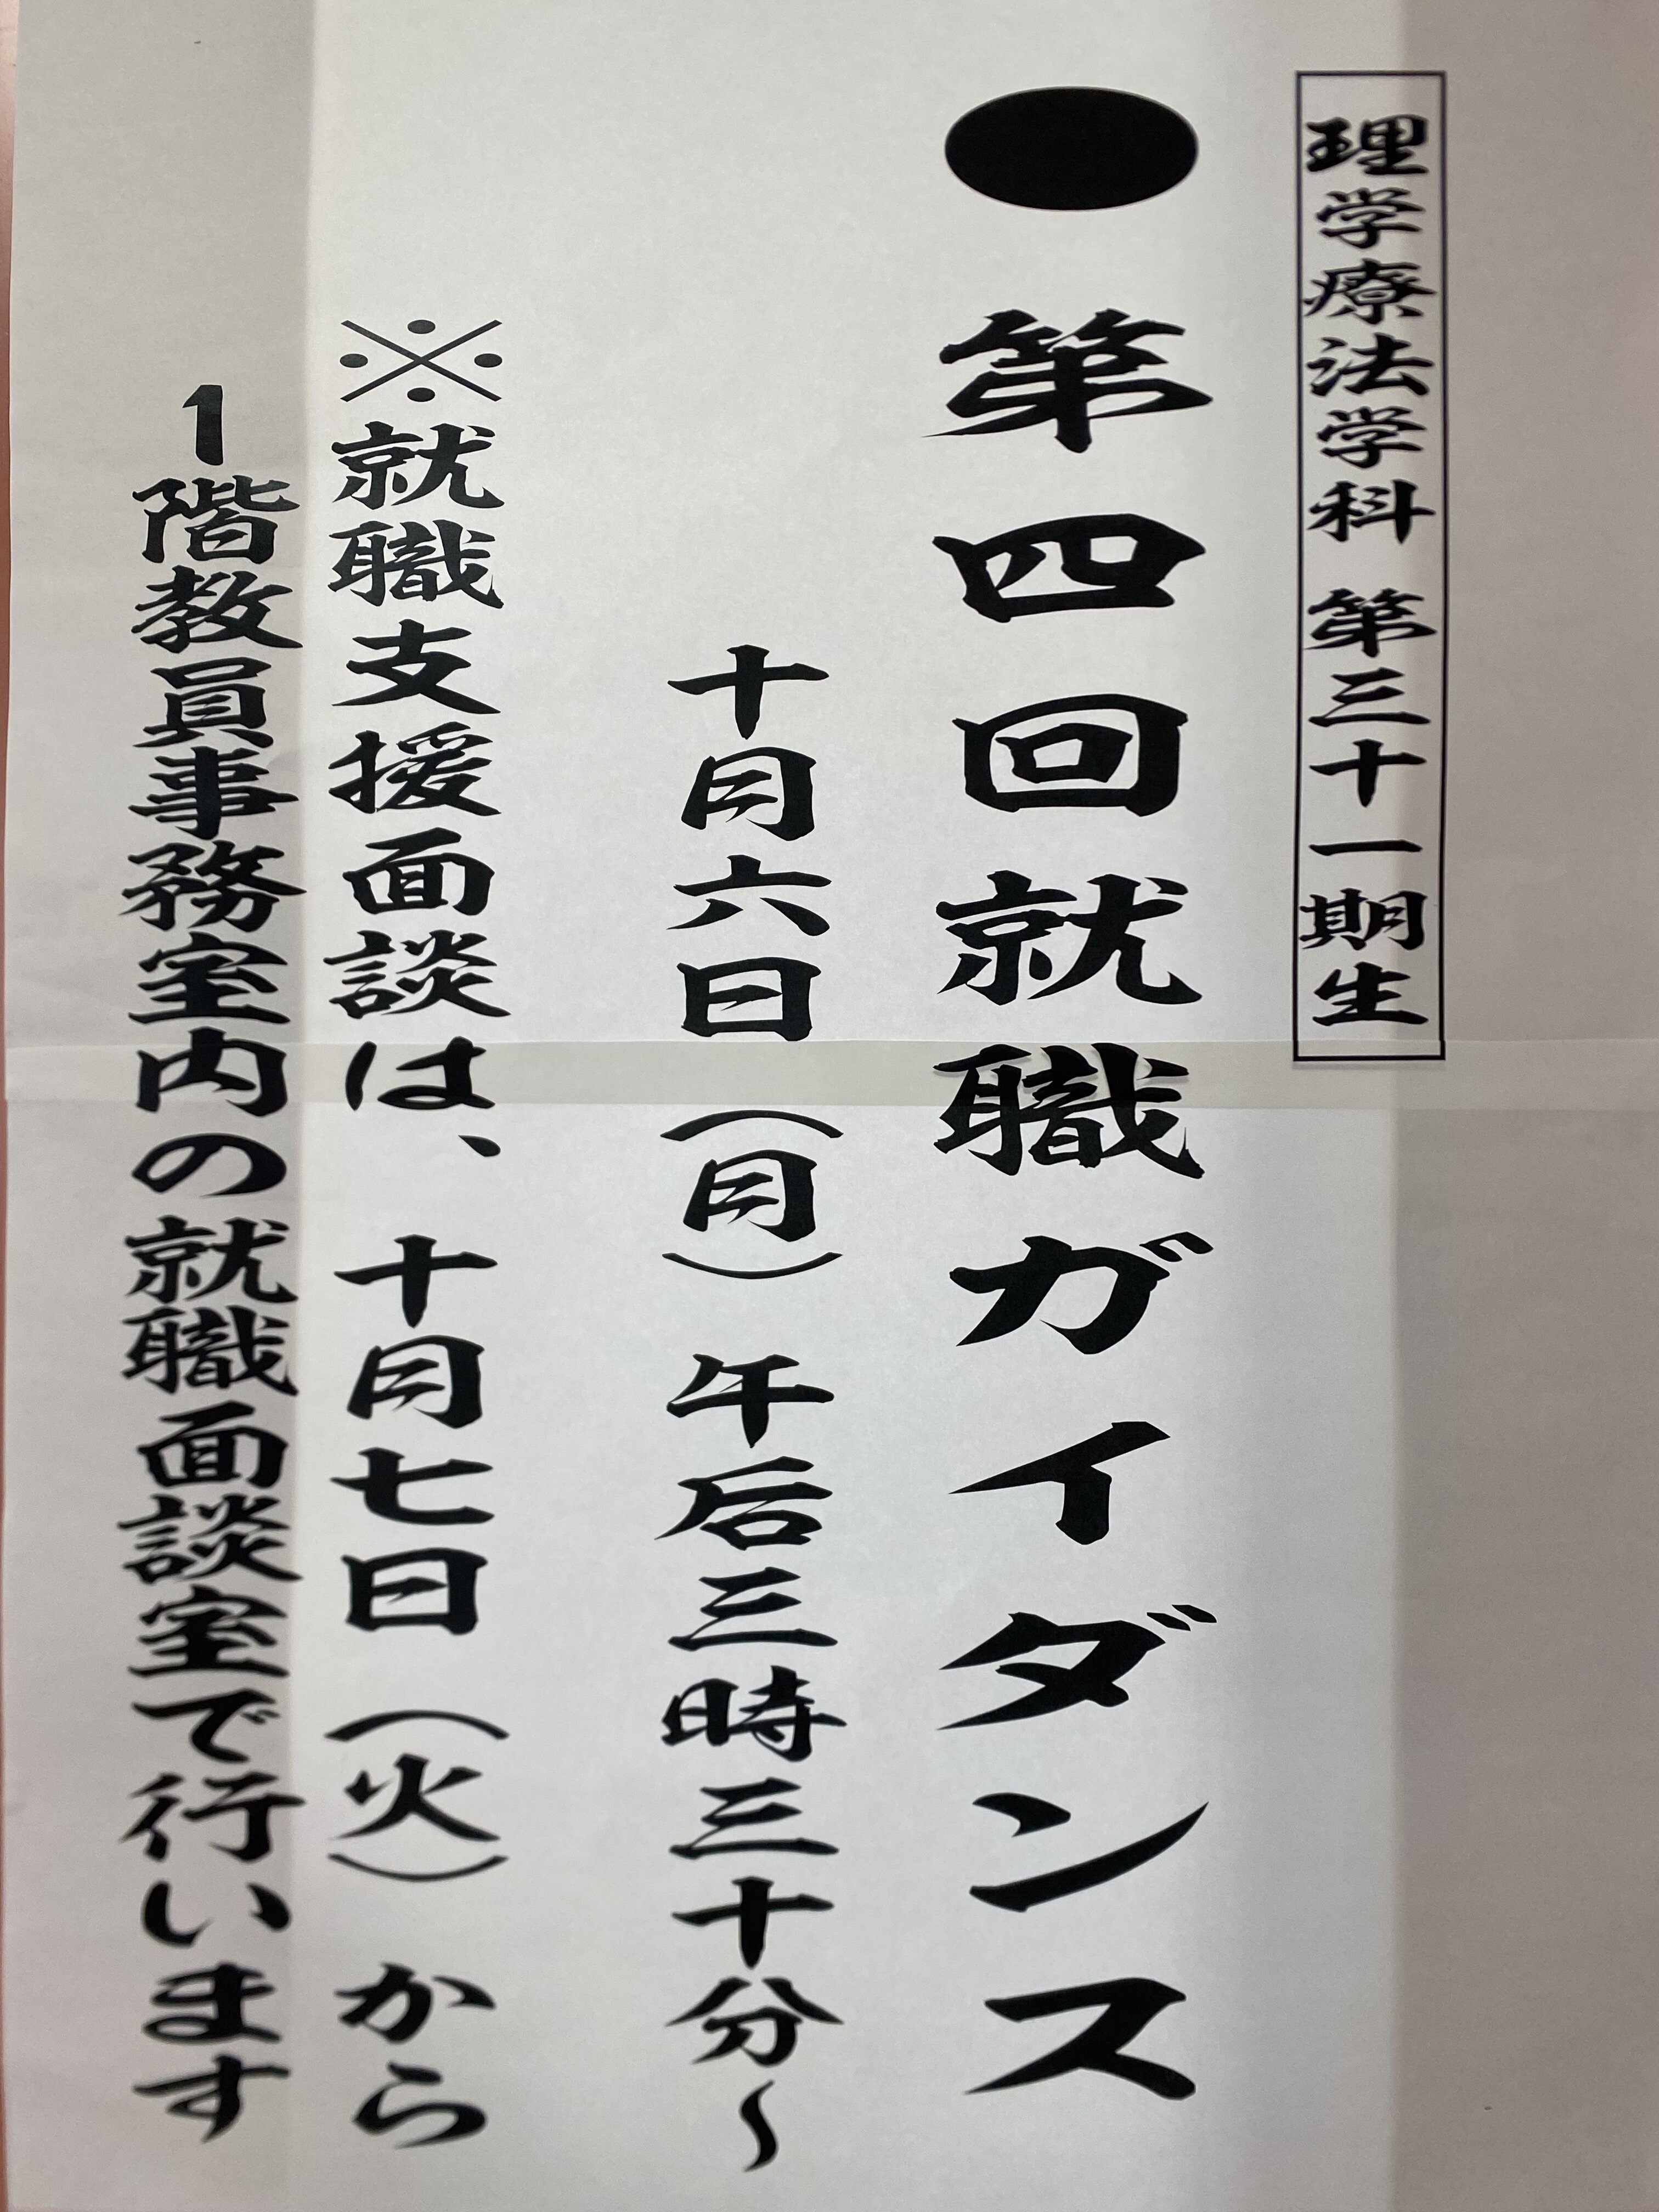 理学療法学科 第三十一期生
●第四回就職ガイダンス
十月六日（月）午后三時三十分～
※就職支援面談は、十月七日（火）から
1階教員事務室内の就職面談室で行います